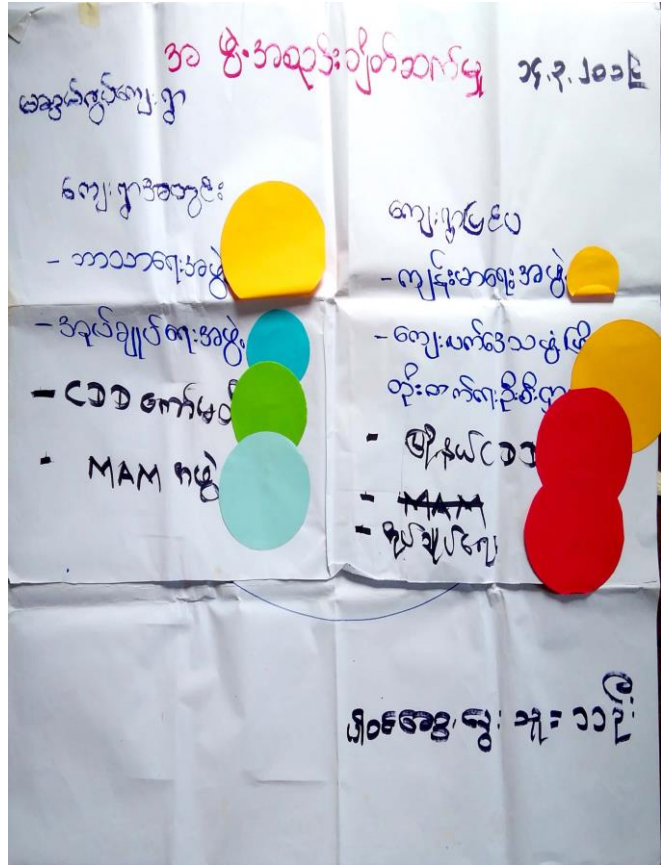 အဖွဲ့အစည်းချိတ်ဆက်မှု
ကျေးရွာအတွင်း
- ဘာသာရေးအဖွဲ့
- အုပ်ချုပ်ရေးအဖွဲ့
- CDD ကော်မတီ
- MAM အဖွဲ့
ကျေးရွာပြင်ပ
- ကျန်းမာရေးအဖွဲ့
- ကျေးလက်ဒေသဖွံ့ဖြိုး
တိုးတက်ရေးဦးစီးဌာန
- မြို့နယ် CDD
- MAM
- အုပ်ချုပ်ရေး
ပါဝင်ဆွေးနွေးသူ = ၁၁ ဦး